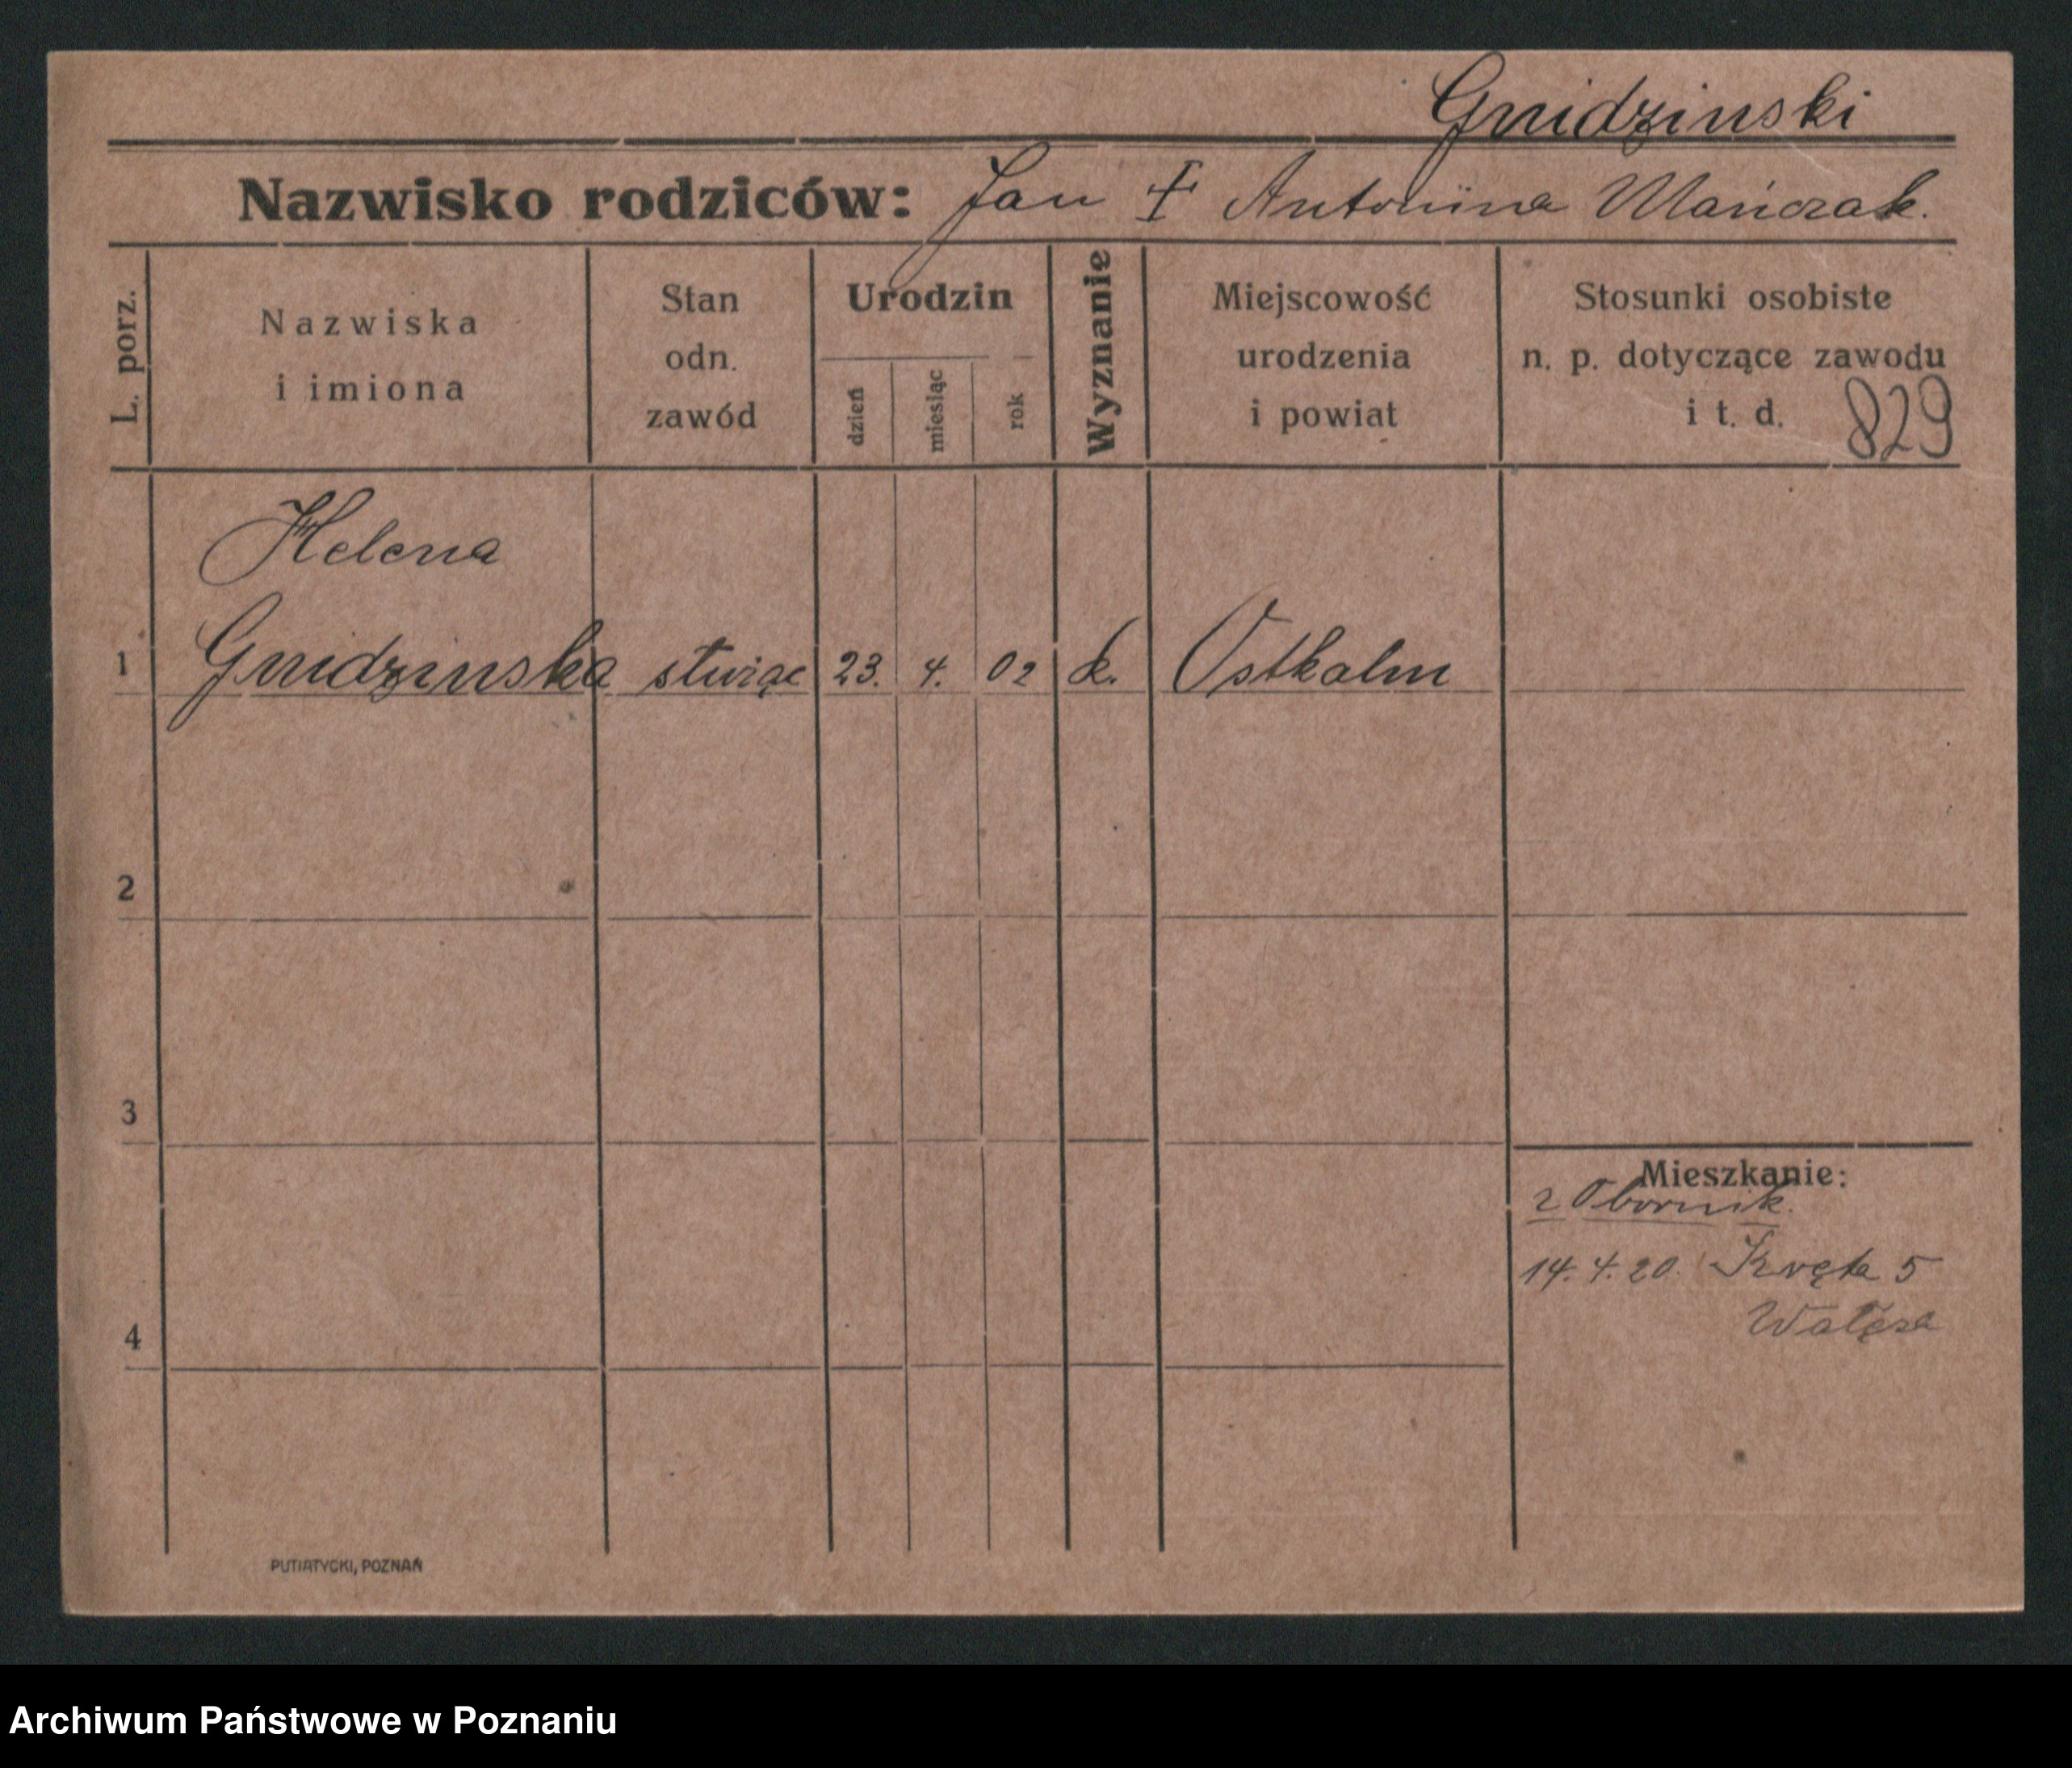 Gnidzinski
Nazwisko rodziców: Jan † Antonina Mańczak.
L. porz.
Nazwiska
i imiona
Stan
odn.
zawód
Urodzin
dzień
miesiąc
rok
Wyznanie
Miejscowość
urodzenia
i powiat
Stosunki osobiste
n. p. dotyczące zawodu
i t. d.
829
Helena
1 Gnidzinska służąc 23. 4. 02 k. Ostkalm
2
3
Mieszkanie:
z Obornik.
14. 4. 20. Kręta 5
4
PUTIATYCKI, POZNAŃ
Archiwum Państwowe w Poznaniu